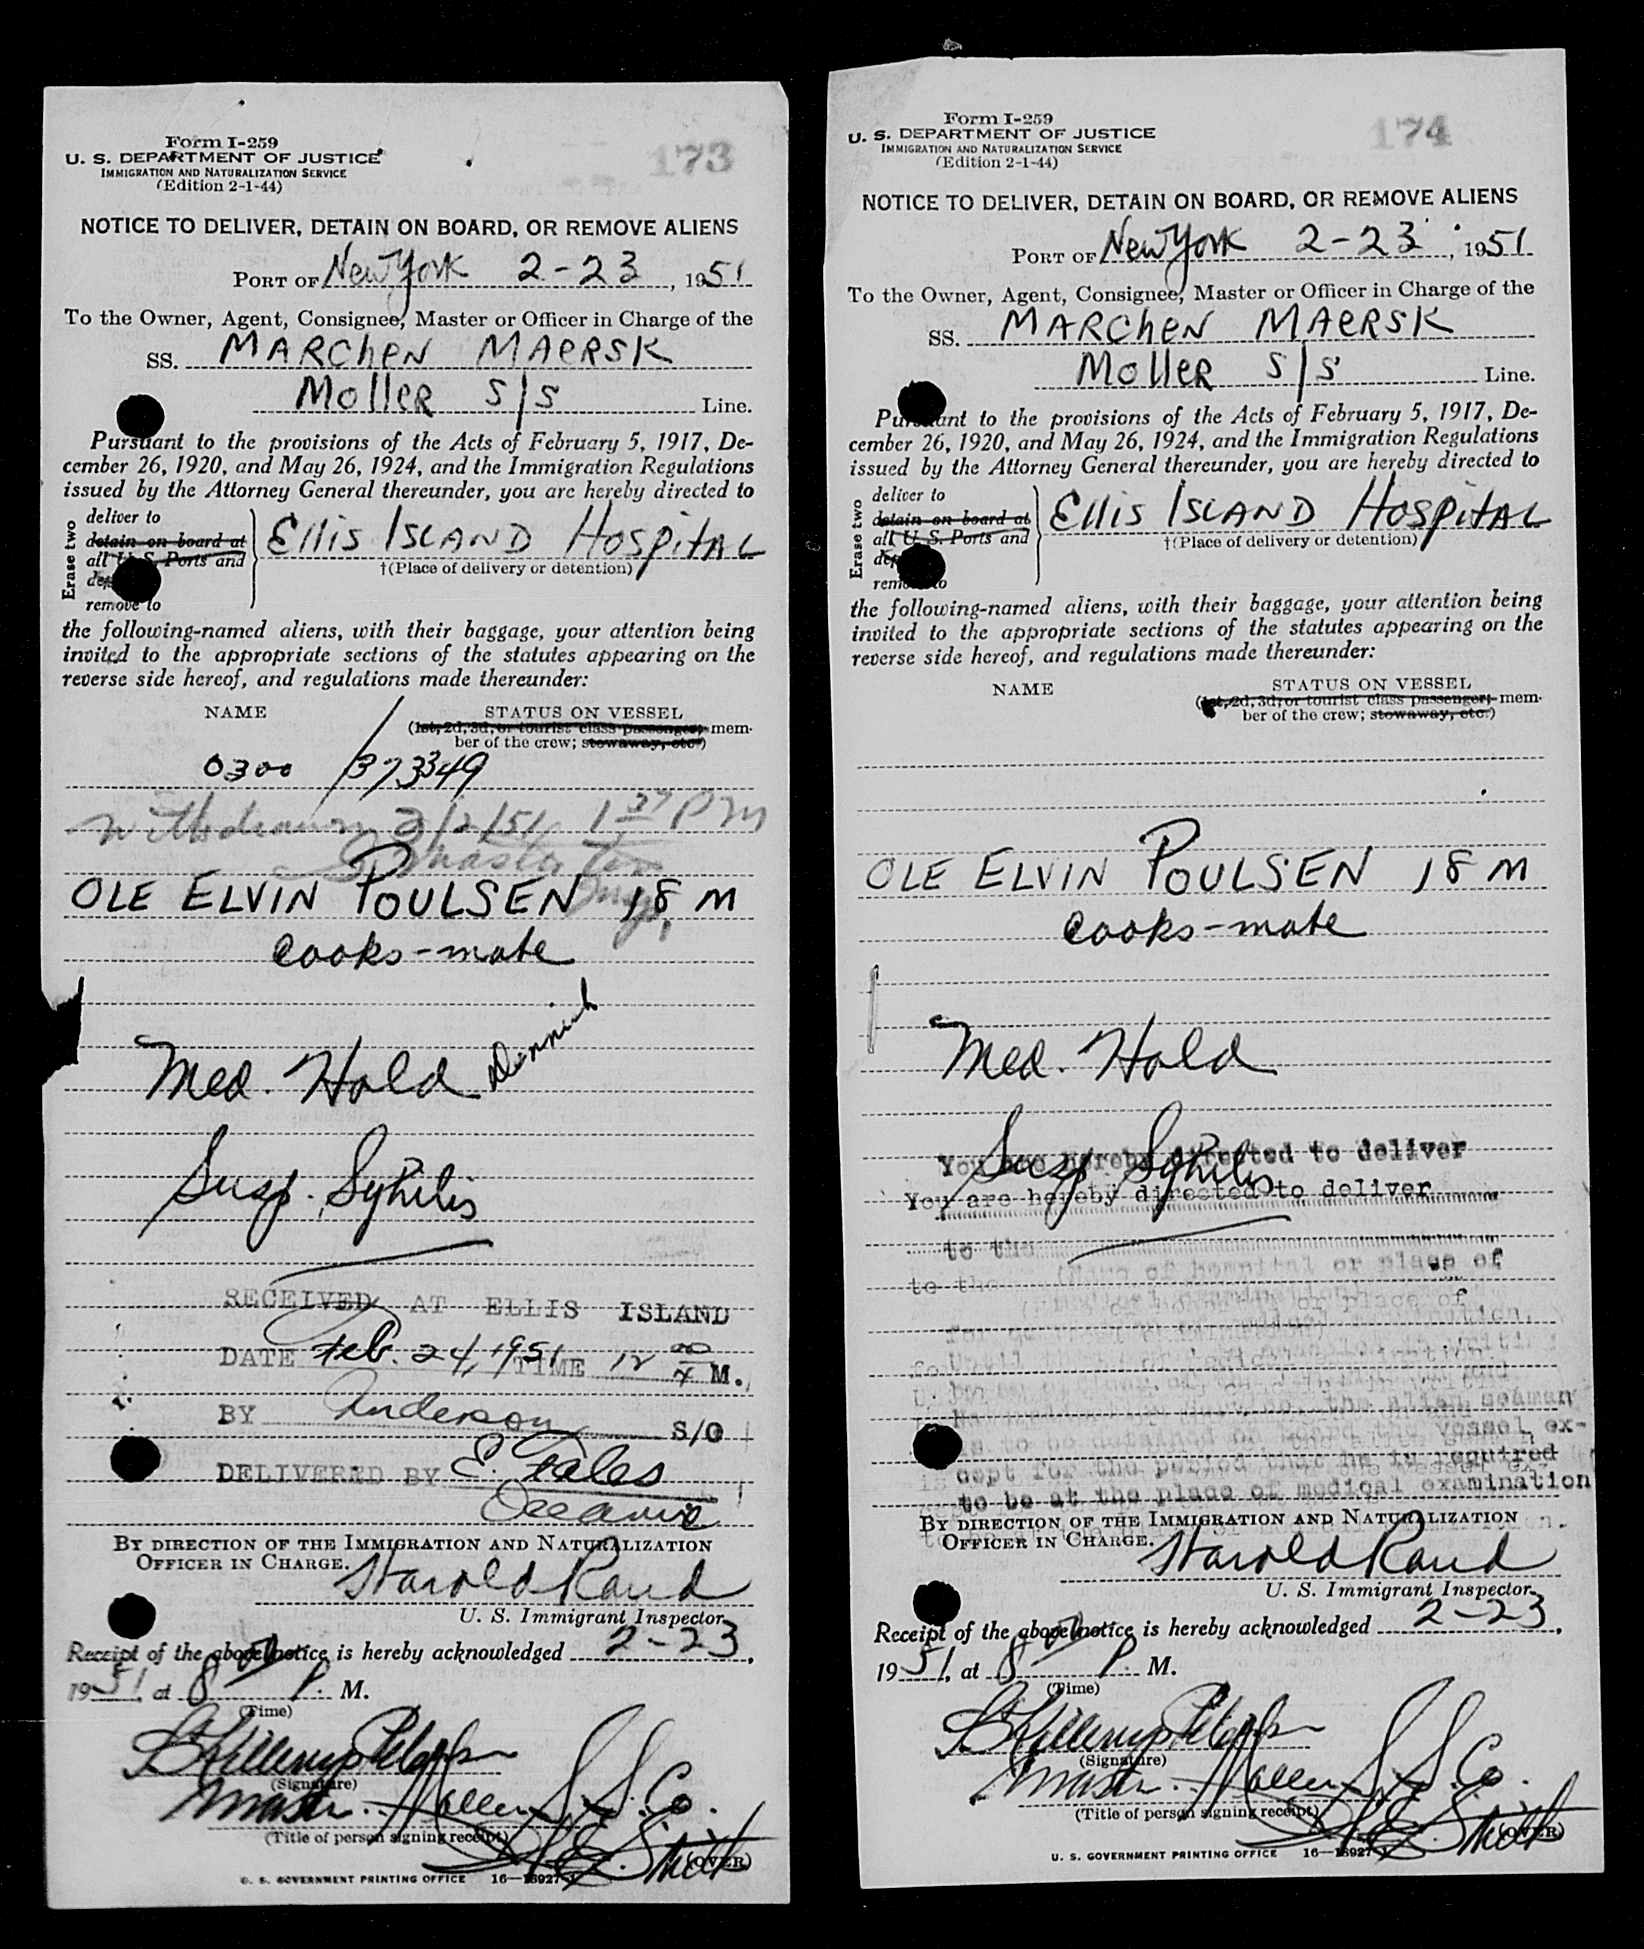 Form I-259
U. S. DEPARTMENT OF JUSTICE
IMMIGRATION AND NATURALIZATION SERVICE
(Edition 2-1-44)
173
NOTICE TO DELIVER, DETAIN ON BOARD, OR REMOVE ALIENS
PORT OF New York 2-23, 1951
To the Owner, Agent, Consignee, Master or Officer in Charge of the
SS. MARCHEN MAERSK
Moller S/S Line.
Pursuant to the provisions of the Acts of February 5, 1917, De-
cember 26, 1920, and May 26, 1924, and the Immigration Regulations
issued by the Attorney General thereunder, you are hereby directed to
Erase two
deliver to
detain on board at
all U. S. Ports and
remove to
Ellis ISLAND HospitAL
†(Place of delivery or detention)
the following-named aliens, with their baggage, your attention being
invited to the appropriate sections of the statutes appearing on the
reverse side hereof, and regulations made thereunder:
NAME
STATUS ON VESSEL
(1st, 2d, 3d, or tourist class passenger; mem-
ber of the crew; stowaway, etc.)
0300 / 373349
Withdrawn 3/2/51 1 27 PM
OLE ELVIN POULSEN 18 M
cooks-mate
Med. Hold
Susp. Syhilis
RECEIVED AT ELLIS ISLAND
DATE Feb. 24, 1951 TIME 12 00 M.
BY Anderson S/O
DELIVERED BY E. Fales
BY DIRECTION OF THE IMMIGRATION AND NATURALIZATION
OFFICER IN CHARGE.
Harold Rand
U. S. Immigrant Inspector.
Receipt of the above notice is hereby acknowledged 2-23,
1951, at 8 P. M.
(Time)
(Signature)
Master. Moller S. S. Co.
(Title of person signing receipt)
(OVER)
U. S. GOVERNMENT PRINTING OFFICE 16—13927-1
Form I-259
U. S. DEPARTMENT OF JUSTICE
IMMIGRATION AND NATURALIZATION SERVICE
(Edition 2-1-44)
174
NOTICE TO DELIVER, DETAIN ON BOARD, OR REMOVE ALIENS
PORT OF New York 2-23, 1951
To the Owner, Agent, Consignee, Master or Officer in Charge of the
SS. MARCHEN MAERSK
Moller S/S Line.
Pursuant to the provisions of the Acts of February 5, 1917, De-
cember 26, 1920, and May 26, 1924, and the Immigration Regulations
issued by the Attorney General thereunder, you are hereby directed to
Erase two
deliver to
detain on board at
all U. S. Ports and
remove to
Ellis ISLAND HospitAL
†(Place of delivery or detention)
the following-named aliens, with their baggage, your attention being
invited to the appropriate sections of the statutes appearing on the
reverse side hereof, and regulations made thereunder:
NAME
STATUS ON VESSEL
(1st, 2d, 3d, or tourist class passenger; mem-
ber of the crew; stowaway, etc.)
OLE ELVIN POULSEN 18 M
cooks-mate
Med. Hold
Susp. Syhilis
You are hereby directed to deliver
You are hereby directed to deliver
to the
to the
(Name of hospital or place of
the alien seaman
is to be detained on board the vessel ex-
cept for the period that he is required
to be at the place of medical examination
BY DIRECTION OF THE IMMIGRATION AND NATURALIZATION
OFFICER IN CHARGE.
Harold Rand
U. S. Immigrant Inspector.
Receipt of the above notice is hereby acknowledged 2-23,
1951, at 8 P. M.
(Time)
(Signature)
Master. Moller S. S. Co.
(Title of person signing receipt)
(OVER)
U. S. GOVERNMENT PRINTING OFFICE 16—13927-1